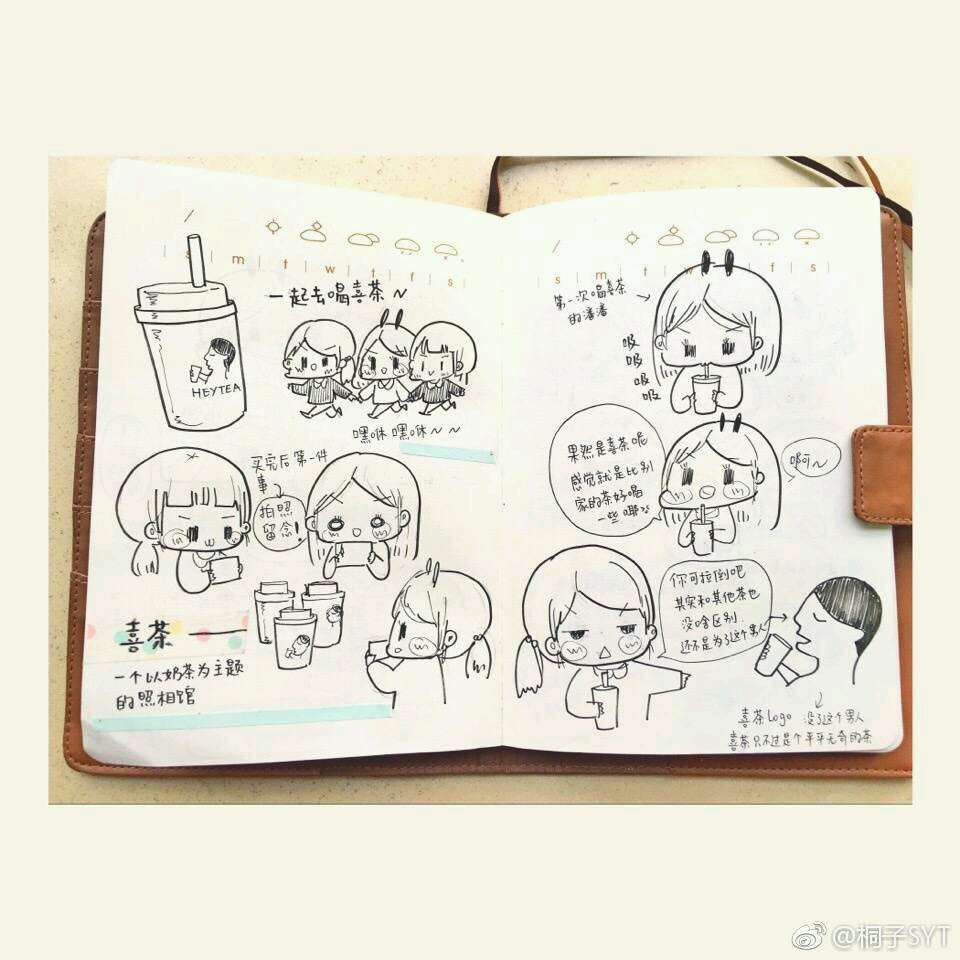 s m t w t f s
一起去喝喜茶～
HEYTEA
嘿咻 嘿咻～～
买完后第一件
事
拍照
留念!
喜茶——
一个以奶茶为主题
的照相馆
s m t w t f s
第一次喝喜茶
的潘潘
吸
吸
吸
吸
果然是喜茶呢
感觉就是比别
家的茶好喝
一些哪??
啊~
你可拉倒吧
其实和其他茶也
没啥区别
还不是为了这个男人
喜茶logo 没了这个男人
喜茶只不过是个平平无奇的茶
@桐子SYT